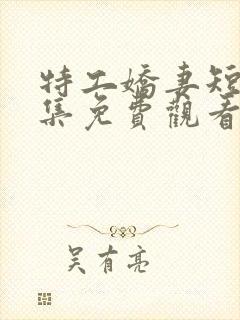 特工嬌妻短
集免費觀看
吴有亮